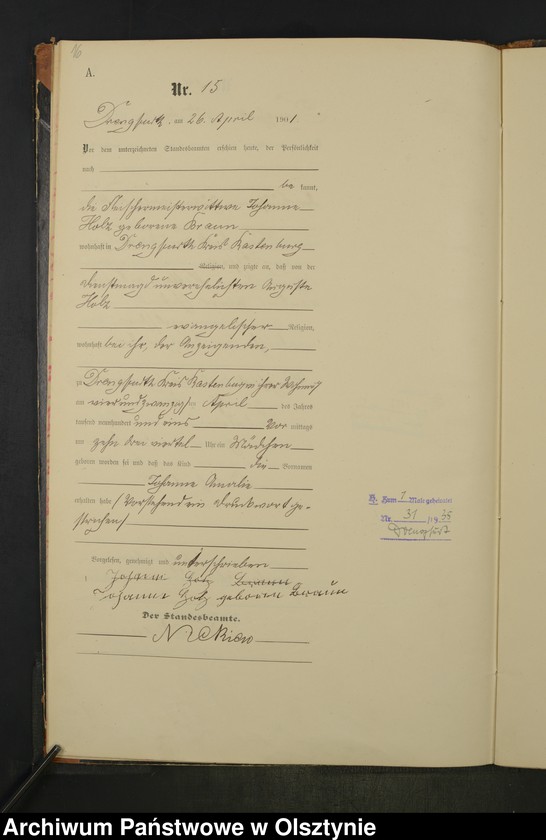 16
A.
Nr. 15
Drengfurth, am 26. April 1901
Vor dem unterzeichneten Standesbeamten erschien heute, der Persönlichkeit
nach
be kannt,
die Fleischermeisterwittwe Johanne
Holz geborene Braun
wohnhaft in Drengfurth Kreis Rastenburg
Religion, und zeigte an, daß von der
Dienstmagd unverehelichten Auguste
Holz
evangelischer Religion,
wohnhaft bei ihr, der Anzeigenden,
zu Drengfurth Kreis Rastenburg in ihrer Wohnung
am vierundzwanzigsten April des Jahres
tausend neunhundert und eins Vor mittags
um zehn drei viertel Uhr ein Mädchen
geboren worden sei und daß das Kind die Vornamen
Johanne Amalie
erhalten habe (Vorstehend ein Druckwort ge-
strichen)
Vorgelesen, genehmigt und unterschrieben
Johanne Holz
Johanne Holz geborene Braun
Der Standesbeamte.
H. Zum 1 Male geheiratet
Nr. 31 /19 35
Drengfurt
Archiwum Państwowe w Olsztynie